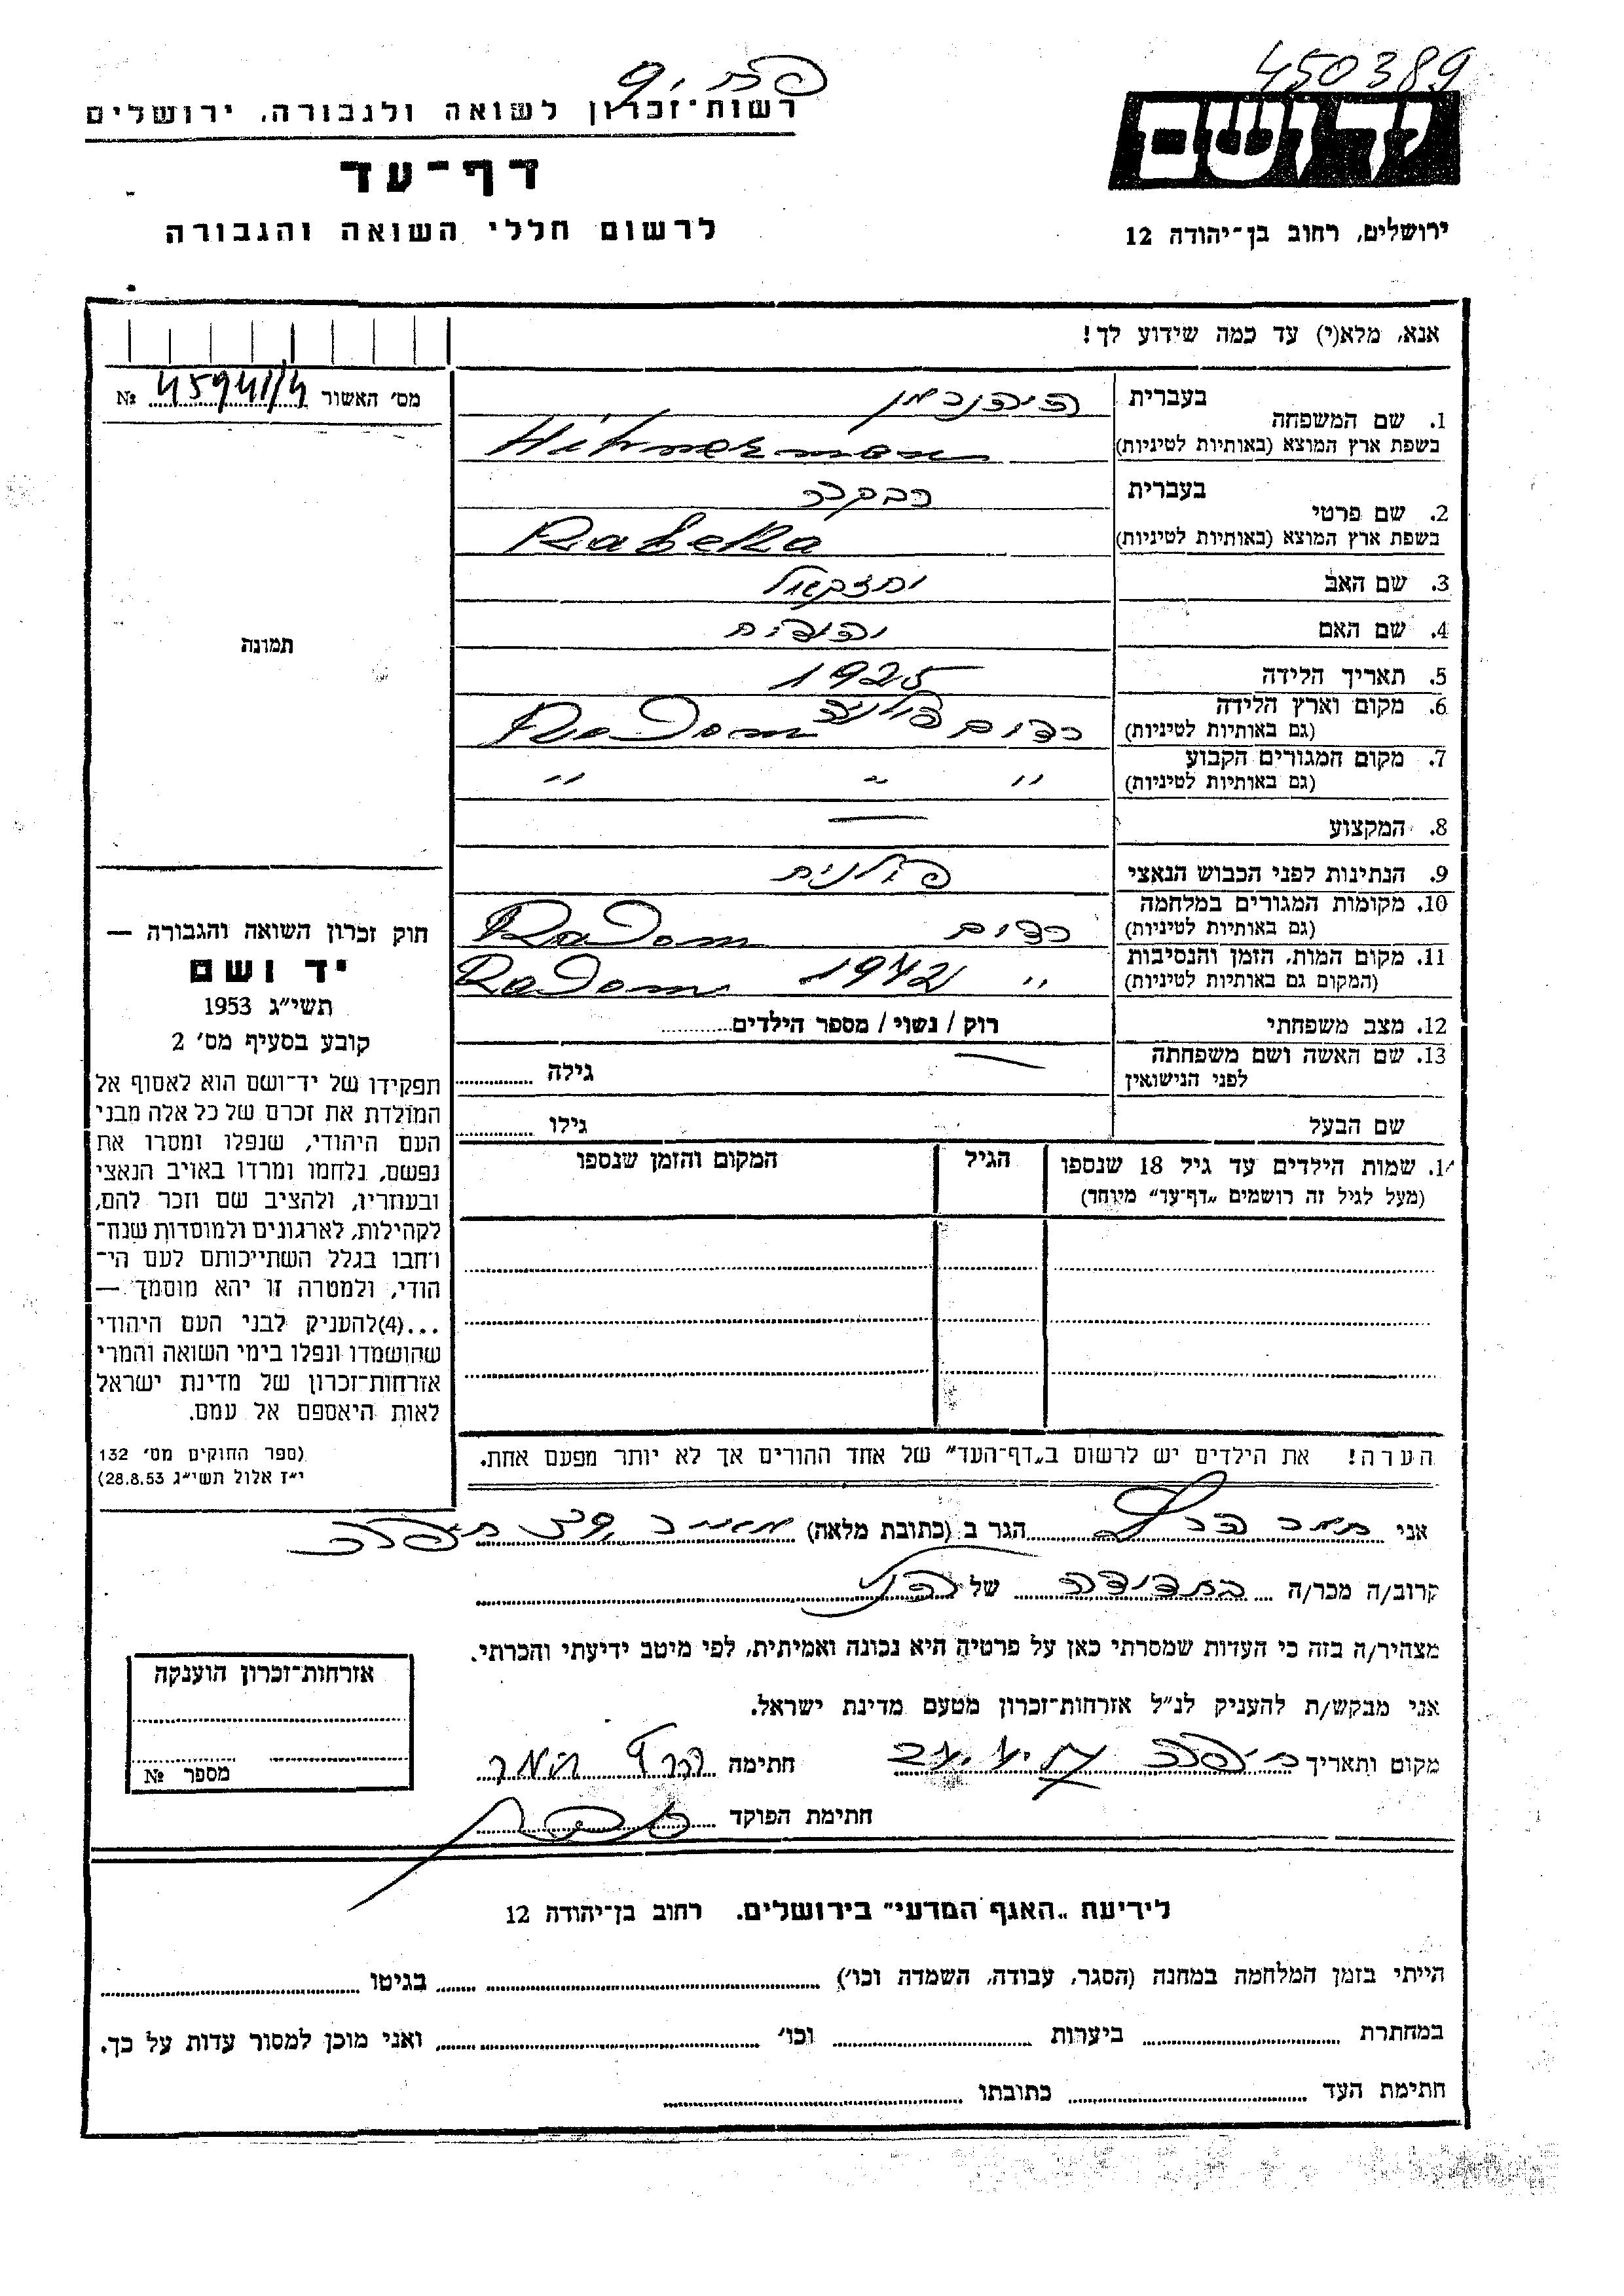 450389
רשות־זכרון לשואה ולגבורה, ירושלים
יד ושם
דף־עד
לרשום חללי השואה והגבורה
ירושלים, רחוב בן־יהודה 12
אנא, מלא(י) עד כמה שידוע לך!
מס' האשור 45941/4 №
1. שם המשפחה
בעברית
בשפת ארץ המוצא (באותיות לטיניות)
2. שם פרטי
בעברית רבקה
בשפת ארץ המוצא (באותיות לטיניות) Rabeka
3. שם האב יחזקאל
4. שם האם יהודית
5. תאריך הלידה 1925
6. מקום וארץ הלידה
(גם באותיות לטיניות) רדום פולניה Radom
7. מקום המגורים הקבוע
(גם באותיות לטיניות) " " "
8. המקצוע —
9. הנתינות לפני הכבוש הנאצי פולנית
10. מקומות המגורים במלחמה
(גם באותיות לטיניות) רדום Radom
11. מקום המות, הזמן והנסיבות
(המקום גם באותיות לטיניות) " 1942 Radom
12. מצב משפחתי רוק / נשוי / מספר הילדים
13. שם האשה ושם משפחתה
לפני הנישואין — גילה
שם הבעל גילו
14. שמות הילדים עד גיל 18 שנספו
(מעל לגיל זה רושמים „דף־עד" מיוחד)
הגיל
המקום והזמן שנספו
הערה! את הילדים יש לרשום ב„דף־העד" של אחד ההורים אך לא יותר מפעם אחת.
תמונה
חוק זכרון השואה והגבורה —
יד ושם
תשי"ג 1953
קובע בסעיף מס' 2
תפקידו של יד־ושם הוא לאסוף אל
המולדת את זכרם של כל אלה מבני
העם היהודי, שנפלו ומסרו את
נפשם, נלחמו ומרדו באויב הנאצי
ובעוזריו, ולהציב שם וזכר להם,
לקהילות, לארגונים ולמוסדות שנח־
רחבו בגלל השתייכותם לעם הי־
הודי, ולמטרה זו יהא מוסמך —
...(4)להעניק לבני העם היהודי
שהושמדו ונפלו בימי השואה והמרי
אזרחות־זכרון של מדינת ישראל
לאות היאספם אל עמם.
(ספר החוקים מס' 132
י"ז אלול תשי"ג 28.8.53)
אני הגר ב (כתובת מלאה) חיפה
קרוב/ה מכר/ה בת דודה של הנ"ל
מצהיר/ה בזה כי העדות שמסרתי כאן על פרטיה היא נכונה ואמיתית, לפי מיטב ידיעתי והכרתי.
אני מבקש/ת להעניק לנ"ל אזרחות־זכרון מטעם מדינת ישראל.
מקום ותאריך חיפה חתימה
חתימת הפוקד
אזרחות־זכרון הוענקה
מספר №
לידיעת „האגף המדעי" בירושלים, רחוב בן־יהודה 12
הייתי בזמן המלחמה במחנה (הסגר, עבודה, השמדה וכו') בגיטו
במחתרת ביערות וכו' ואני מוכן למסור עדות על כך.
חתימת העד כתובתו